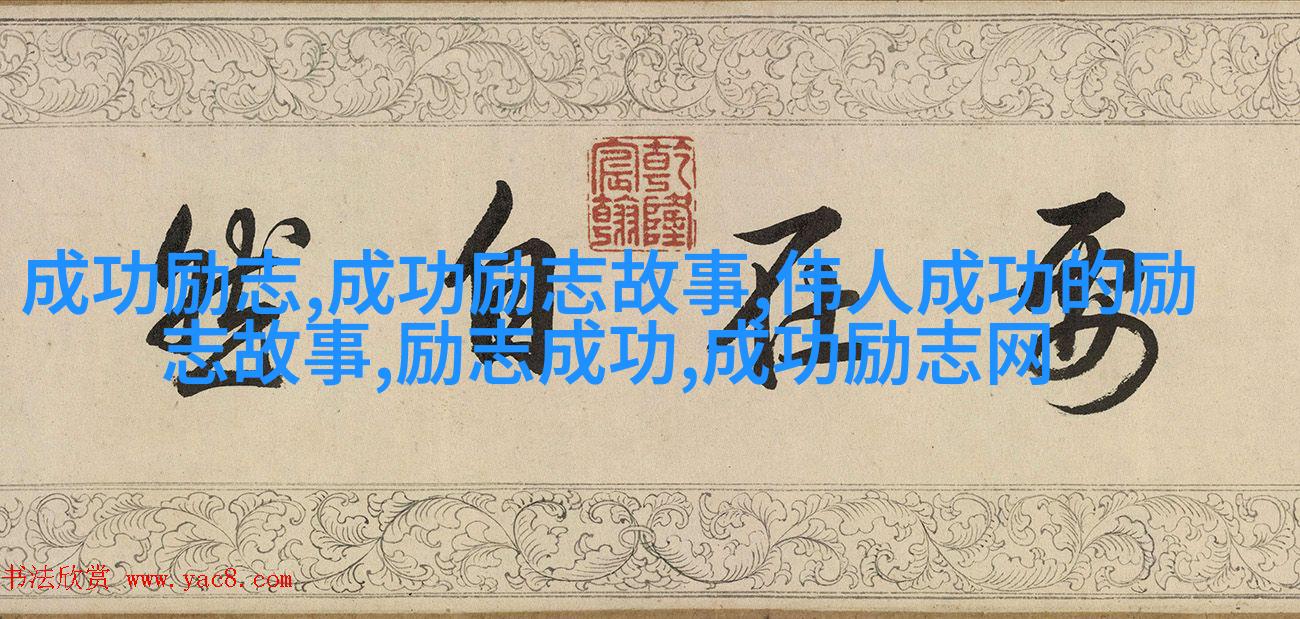 乾隆
宸翰
要在自然
成功励志,成功励志故事,伟人成功的励
志故事,励志成功,成功励志网
书法欣赏 www.yac8.com